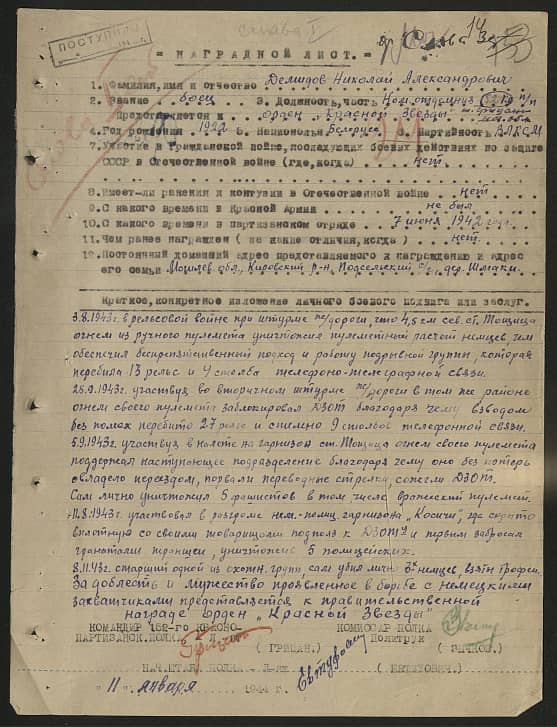 ПОСТУПИЛО
Слава
= НАГРАДНОЙ ЛИСТ. =
1. Фамилия, имя и отчество Демидов Николай Александрович
2. Звание боец 3. Должность, часть Ком. отд. 152 п/п
Представляется к орден "Красной Звезды"
4. Год рождения 1922 5. Национальн Беларус 6. Партийность ВЛКСМ
7. Участие в Гражданской войне, последующих боевых действиях по защите
СССР в Отечественной войне (где, когда) нет
8. Имеет-ли ранения и контузии в Отечественной войне нет
9. С какого времени в Красной Армии не был
10. С какого времени в партизанском отряде 7 июня 1942 года
11. Чем ранее награжден ( за какие отличия, когда ) нет.
12. Постоянный домашний адрес представляемого к награждению и адрес
его семьи Могилев. обл., Кировский р-н, Подсельский с/с, дер. Шмаки.
Краткое, конкретное изложение личного боевого подвига или заслуг.
3.8.1943г. в рельсовой войне при штурме ж/дороги, что 4,5 км сев. ст. Тощица
огнем из ручного пулемета уничтожил пулеметный расчет немцев чем
обеспечил беспрепятственный подход и работу подрывной группы, которая
перебила 13 рельс и 4 столба телефоно-телеграфной связи.
28.9.1943г. участвуя во вторичном штурме ж/дороги в том же районе
огнем своего пулемета заблокировал ДЗОТ благодаря чему взводом
без помех перебито 27 рельс и спилено 9 столбов телефонной связи.
5.9.1943г. участвуя в налете на гарнизон ст. Тощица огнем своего пулемета
поддержал наступающее подразделение благодаря чему оно без потерь
овладело переездом, порвали переводные стрелки, сожгли ДЗОТ.
Сам лично уничтожил 5 фашистов в том числе вражеский пулемет.
11.8.1943г. участвовал в разгроме нем.-полиц. гарнизона "Косичи", где скрытно
вплотную со своими товарищами подполз к ДЗОТу и первым забросал
гранатами траншеи, уничтожив 5 полицейских.
8.11.43г. старший одной из охотн. групп, сам убил лично 3х немцев, взяты трофеи.
За доблесть и мужество проявленное в борьбе с немецкими
захватчиками представляется к правительственной
награде орден "Красной Звезды"
КОМАНДИР 152-го КРАСНО- КОМИССАР ПОЛКА
ПАРТИЗАНСК. ПОЛКА Политрук
( ГРИЦАН. ) ( БЫЧКОВ. )
НАЧ. ШТАБ. ПОЛКА
( ЕВТУХОВИЧ. )
" 11 " января 1944 г.